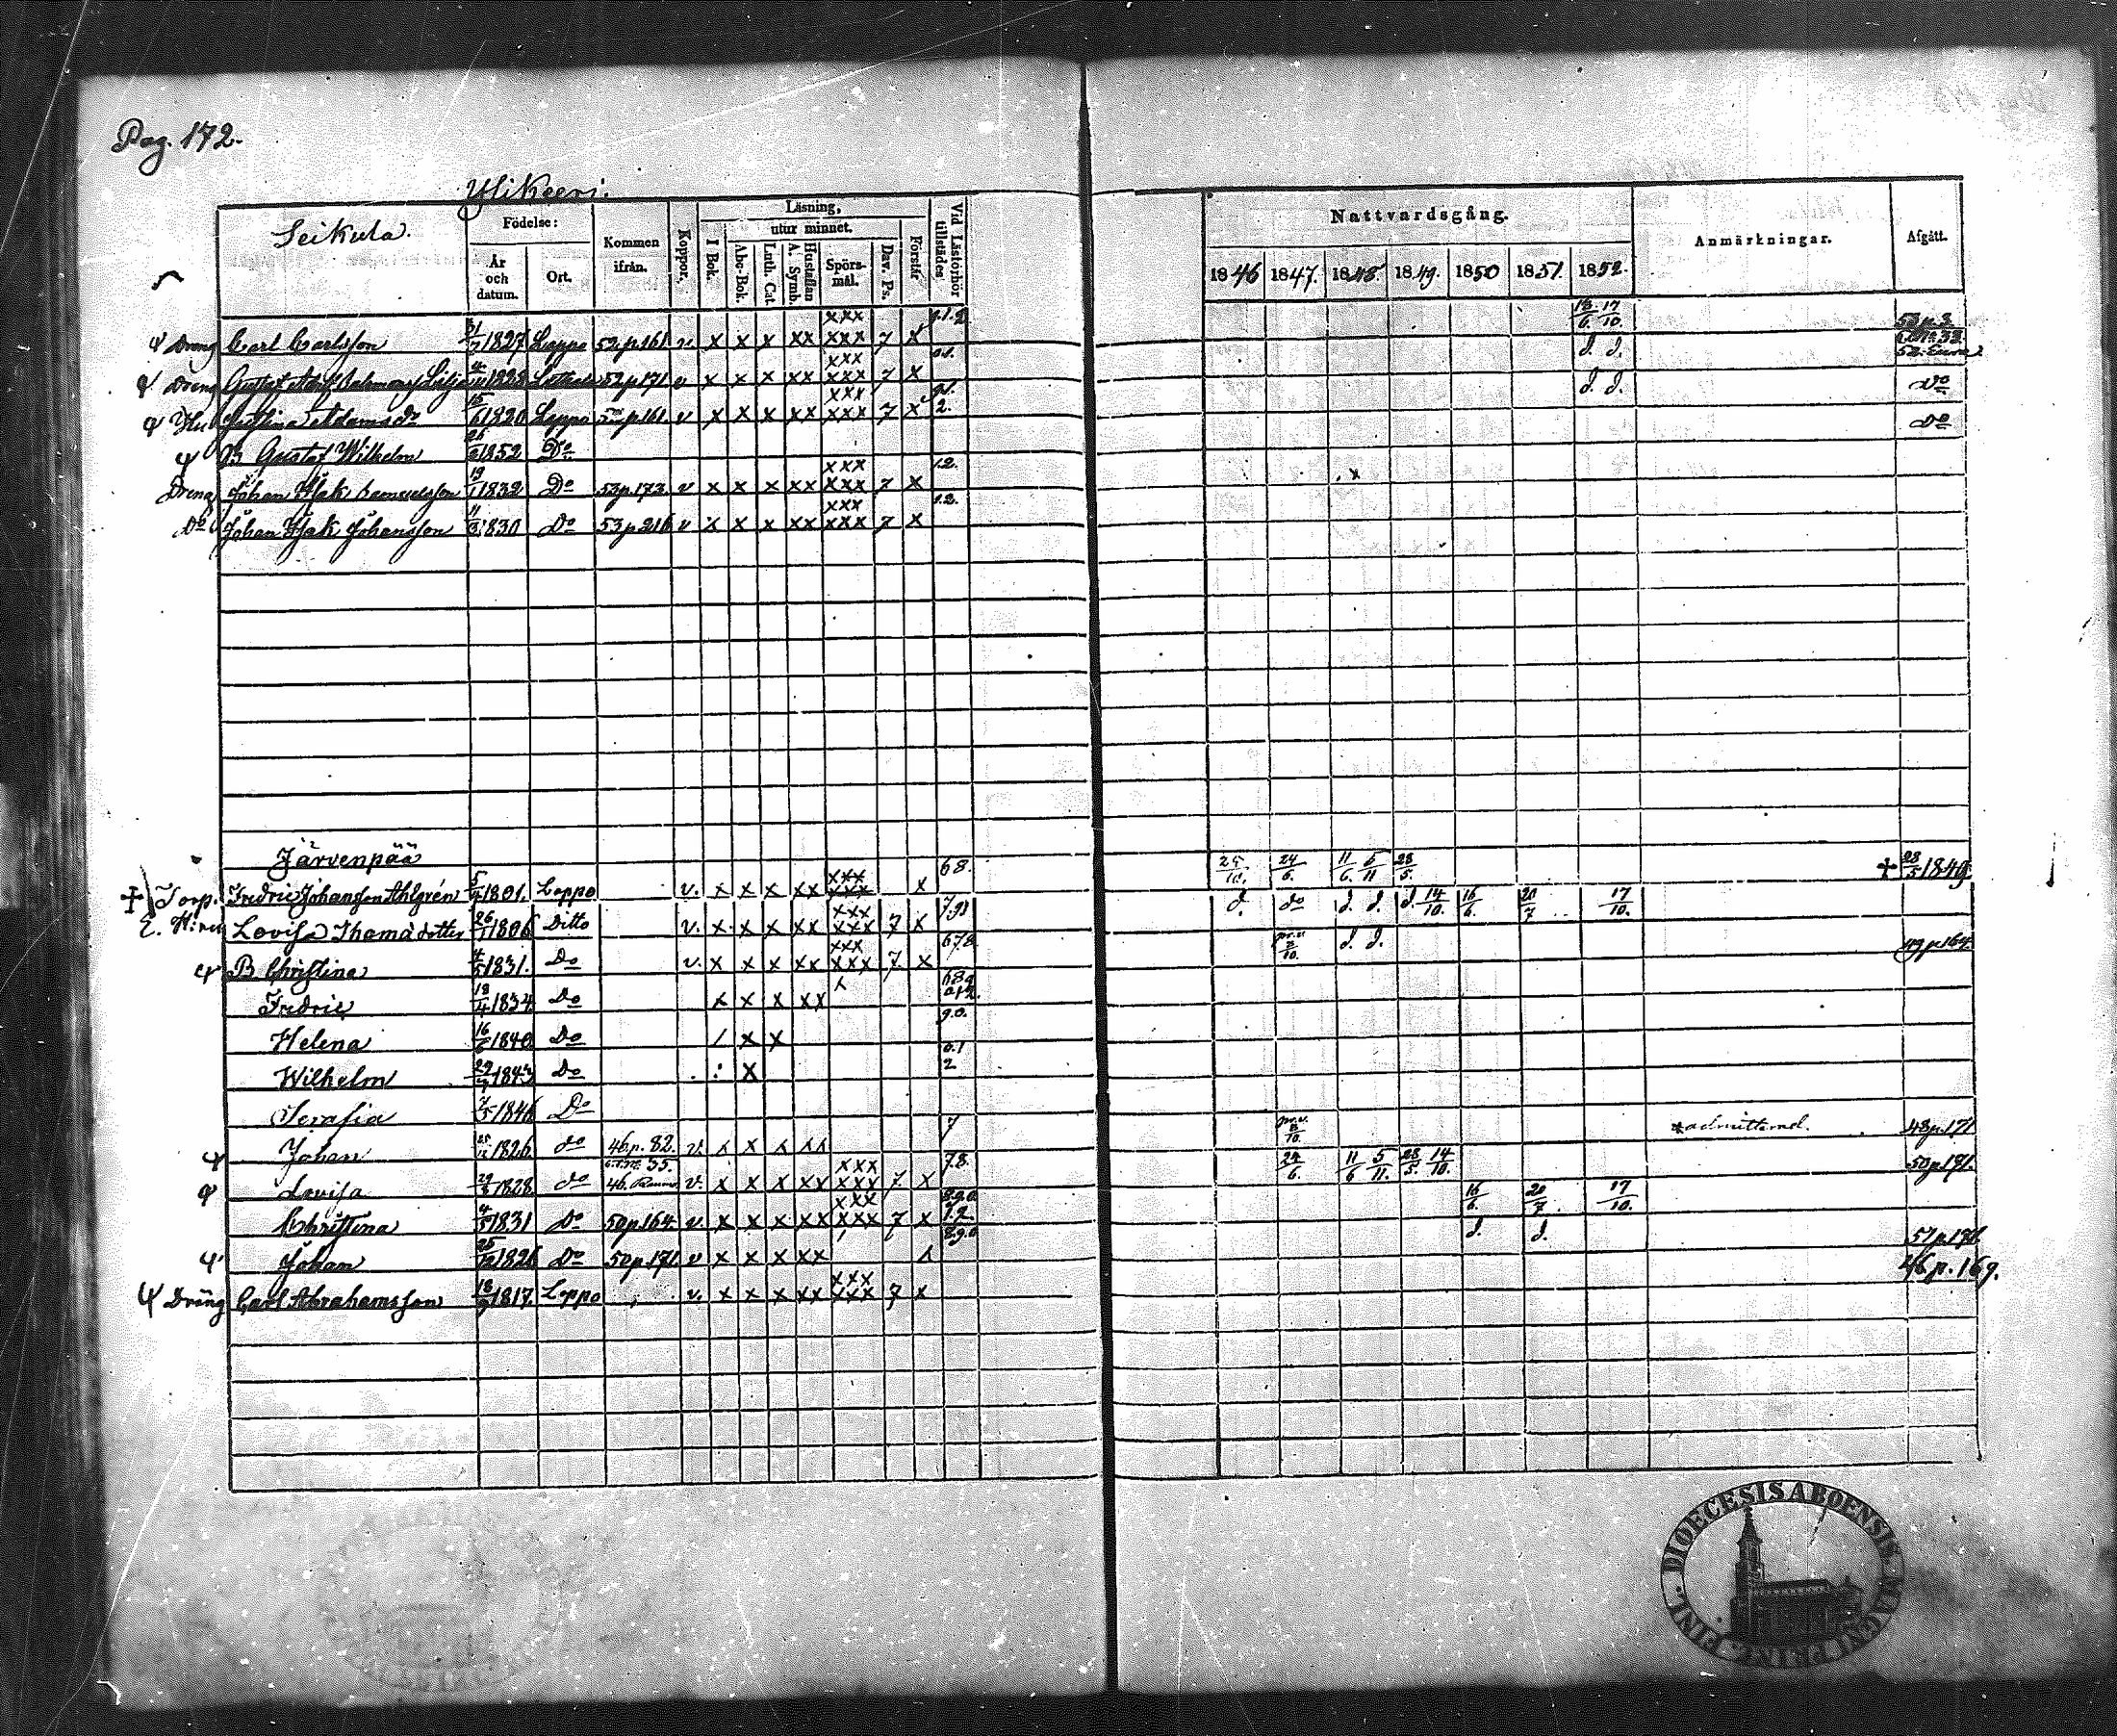 Pag. 172.
Ylikeeri.
Seikula.
Födelse:
År och datum.
Ort.
Kommen ifrån.
Koppor.
Läsning,
I Bok.
utur minnet.
Abc-Bok.
Luth. Cat.
Hustaflan A. Symb.
Spörs-mål.
Dav. Ps.
Förstår
Vid Läsförhör tillstädes
Nattvardsgång.
1846 1847. 1848 1849. 1850 1851. 1852.
Anmärkningar.
Afgått.
Dreng Carl Carlsson 31/7 1827 Lappo 52 p.161 v x x x xx xxx xxx 7 x 13/6. 17/10. 53 p.
Dreng Gustaf 1828 52 p.171 v x x x xx xxx xxx 7 x d. d. 52. Eura
Hu Justina Adamsdr 15/6 1820 Lappo p.161. v x x x xx xxx xxx 7 x 2. d. d. Do
B Gustaf Wilhelm 1852 Do Do
Dreng Johan Isak Samuelsson 19/1 1832 Do 53 p.173. v x x x xx xxx xxx 7 x 1.2. x
Do Johan Isak Johansson 11/3 1830 Do 53 p 216 v x x x xx xxx xxx 7 x 1.2.
Järvenpää
Torp. Fredric Johansson Ahlgrén 5/4 1801. Loppo v. x x x xx xxx xxx x 68. 25/10. 24/6. 11/6. 5/11 28/5. + 28/5 1849
2. H:ru Lovisa Thomä dotter 26/1 1806 Ditto v. x x x xx xxx xxx 7 x d. do d. d. d. 14/10. 16/6. 20/7 17/10.
B Christina 4/5 1831. Do v. x x x xx xxx xxx 7. x 678 8/10. d. d. 49 p 164
Fredric 18/4 1834 Do x x x xx
Helena 16/6 1840 Do / x x 9.0.
Wilhelm 1843 Do x 0.1 2
Serafia 7/5 1846 Do
Johan 25/12 1826 do 46 p. 82. v. x x x xx 7 8/10. admitterad. 48 p. 171
Lovisa 29/3 1828. do 46. Raumo. v. x x x xx xxx xxx 7 x 78. 24/6. 11/6 5/11. 28/5. 14/10. 50 p 181.
Christina 4/5 1831 Do 50 p 164 v. x x x xx xxx xxx 7 x 16/6. 20/7. 17/10.
Johan 25/12 1826 Do 50 p. 171. v x x x xx 8.9.0 d. d. 51 p 171.
Dräng Carl Abrahamsson 18/9 1817. Loppo v. x x x xx xxx xxx 7 x 46 p. 169.
DIOECESIS ABOENSIS. MAGNI PRINC. FINL.